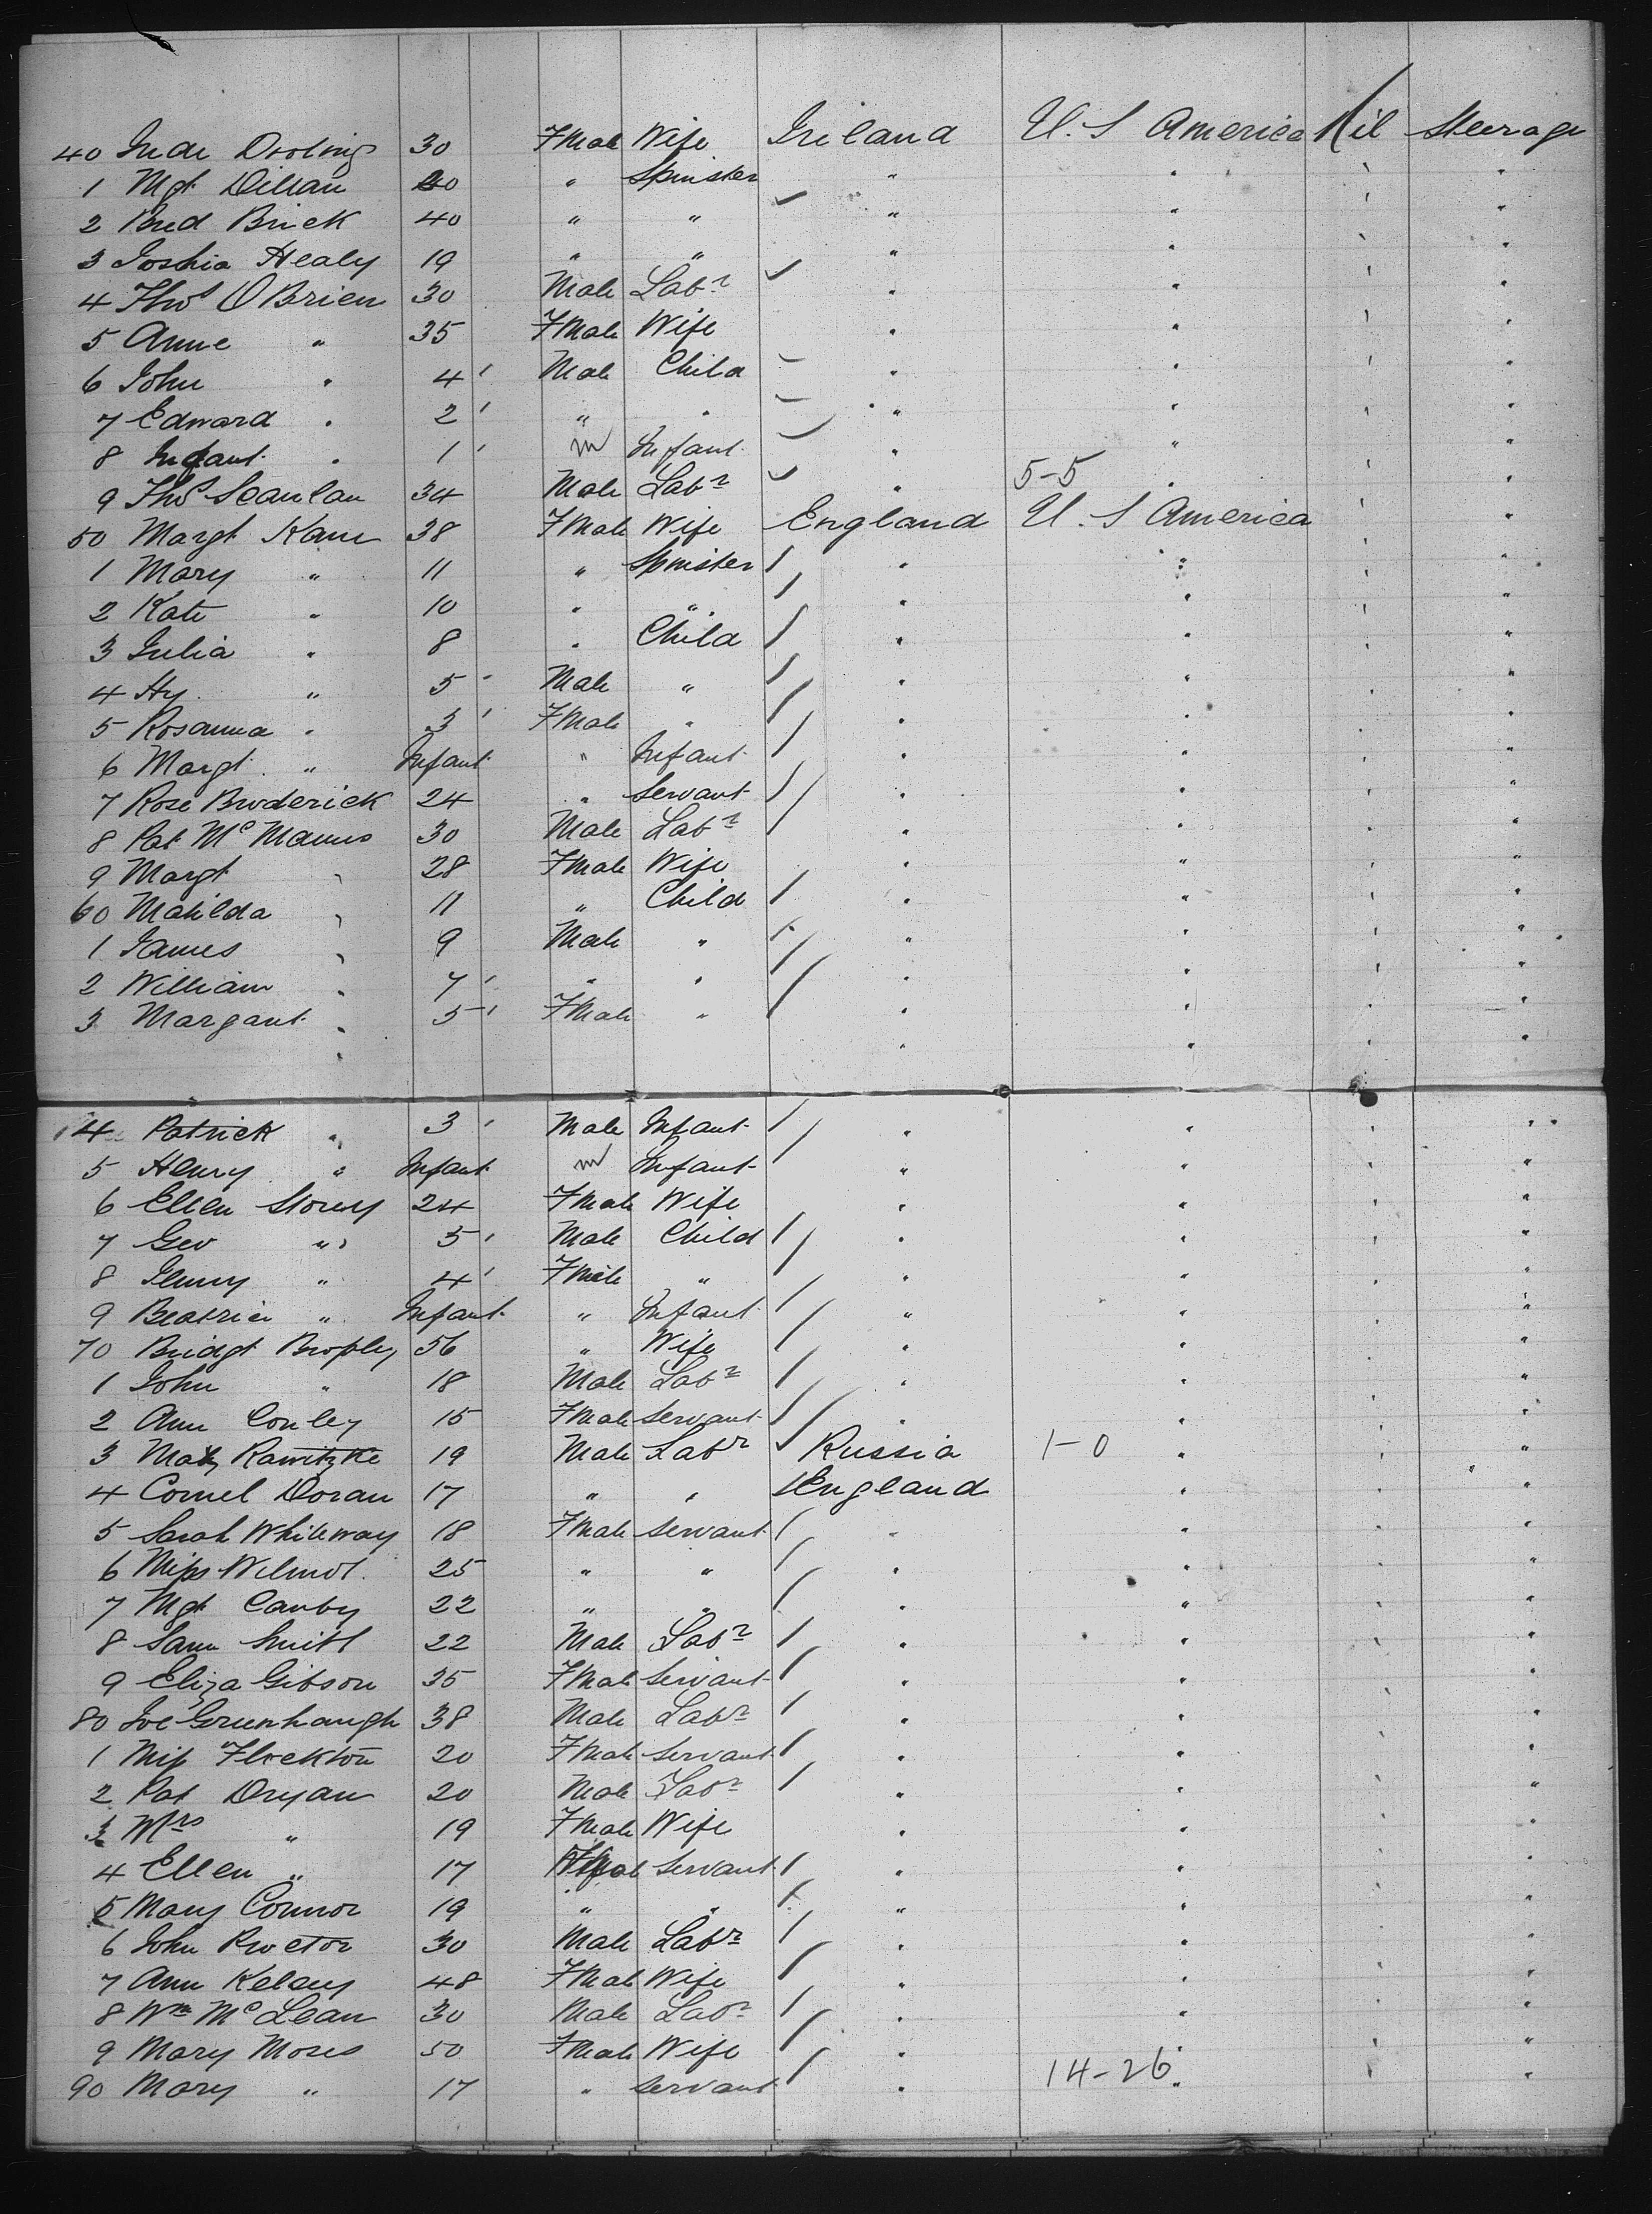 40 Drohing 30 FMale Wife Ireland U. S America Nil Steerage
1 Mgt. Dillan 20 " Spinster " " " "
2 Brid Brick 40 " " " " " "
3 Joshia Healy 19 " " " " " "
4 Thos O Brien 30 Male Labr " " " "
5 Anne " 35 FMale Wife " " " "
6 John " 4 Male Child " " " "
7 Edward " 2 " " " " " "
8 Infant " 1 m Infant " " " "
9 Thos Scanlan 34 Male Labr " 5-5 " " "
50 Margt Kane 38 FMale Wife England U. S America " "
1 Mary " 11 " Spinster " " " "
2 Kate " 10 " " " " " "
3 Julia " 8 " Child " " " "
4 Hy. " 5 Male " " " " "
5 Rosanna " 3 FMale " " " " "
6 Margt. " Infant " Infant " " " "
7 Rose Broderick 24 " Servant " " " "
8 Pat McManus 30 Male Labr " " " "
9 Margt " 28 FMale Wife " " " "
60 Matilda " 11 " Child " " " "
1 James " 9 Male " " " " "
2 William " 7 " " " " " "
3 Margaret " 5 FMale " " " " "
" " " " "
4 Patrick " 3 Male Infant " " " "
5 Henry " Infant m Infant " " " "
6 Ellen Storey 24 FMale Wife " " " "
7 Geo " 5 Male Child " " " "
8 Jenny " 4 FMale " " " " "
9 Beatrice " Infant " Infant " " " "
70 Bridgt Brophy 56 " Wife " " " "
1 John " 18 Male Labr " " " "
2 Ann Conley 15 FMale Servant " " " "
3 Rawitzke 19 Male Labr Russia 1-0 " " "
4 Cornel Doran 17 " " England " " "
5 Sarah Whiteway 18 FMale Servant " " " "
6 Miss Wilmot. 25 " " " " " "
7 Mgt. Canby 22 " " " " " "
8 Sam Smith 22 Male Labr " " " "
9 Eliza Gibson 35 FMale Servant " " " "
80 Joe Greenhaugh 38 Male Labr " " " "
1 Miss Flockton 20 FMale Servant " " " "
2 Pat Dryan 20 Male Labr " " " "
3 Mrs " 19 FMale Wife " " " "
4 Ellen " 17 Servant " " " "
5 Mary Connor 19 " " " " " "
6 John Proctor 30 Male Labr " " " "
7 Ann Kelery 48 FMale Wife " " " "
8 Wm McLean 30 Male Labr " " " "
9 Mary Moses 50 FMale Wife " " " "
90 Mary " 17 " Servant " 14-26 " " "